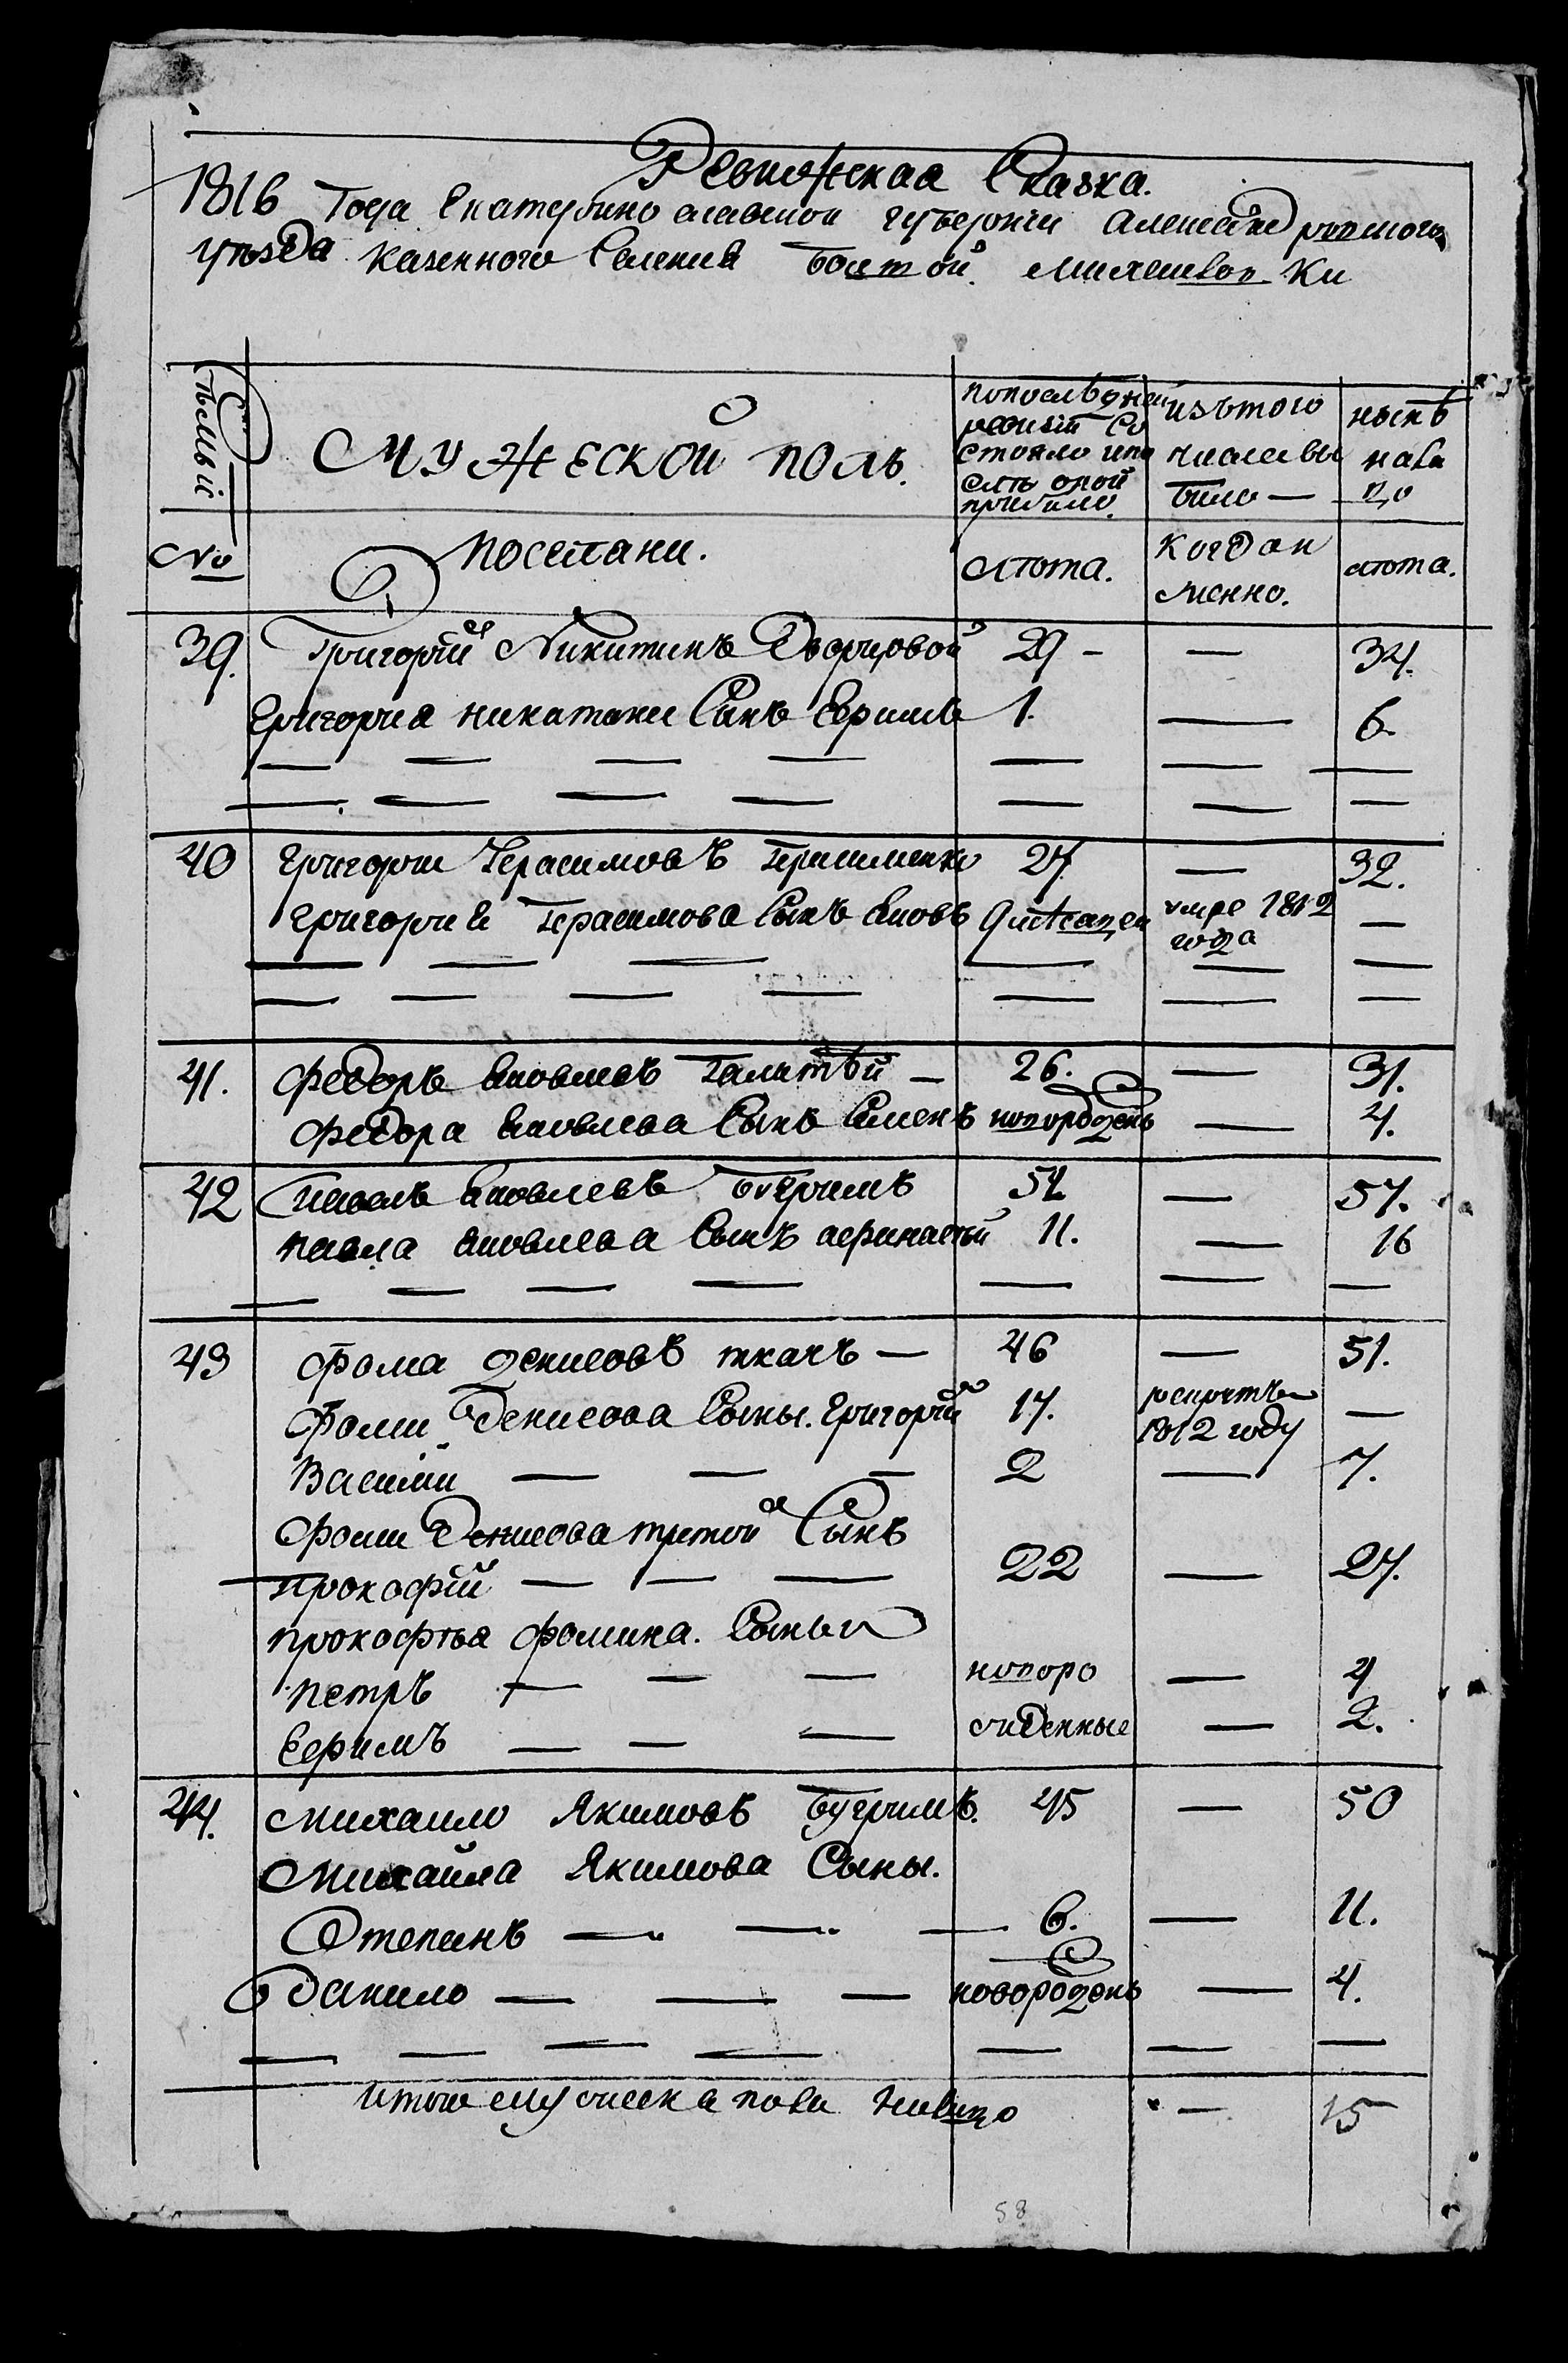 Ревижская Сказка.
1816 Года Екатеринославской губернии Александровского
уезда казенного Селения Богатой Михайловки
Семьи
Мужеской полъ.
По последней ревизіи состояло и после оной прибыло.
изътого числа выбыло —
нынѣ налицо
№
Поселяни.
Лѣта.
Когда именно.
лѣта.
39. Григорій Никитинъ Дворцовой 29 — — 34.
Григориа никитина Сынъ Ефимъ 1. — 6.
40 Григории Герасимовъ Герасименко 27. — 32.
Григориа Герасимова Сынъ Яковъ 9 месяцеи умре 1812 года —
41. Федоръ Яковлевъ — 26. — 31.
Федора Яковлева Сынъ Семенъ новорожденъ — 4.
42 Павелъ Яковлевъ Бугримъ 52 — 57.
павла Яковлева Сынъ афанастій 11. — 16
43 Фома Денисовъ ткачъ — 46 — 51.
Фоми Денисова Сыны. Григорій 17. рекрутъ 1812 году —
Василій — — — 2 — 7.
Фоми Денисова третой Сынъ
прокофій — — — 22 — 27.
прокофъя Фомина. Сыньи
петръ — — — новоро — 4
Ефимъ — — — жденные — 2.
44. Михаило Якимовъ Бугримъ. 45 — 50
Михаила Якимова Сыны.
Степанъ — — — 6. — 11.
Данило — — — новорожденъ — 4.
Итого мужеска пола налицо — 15
58